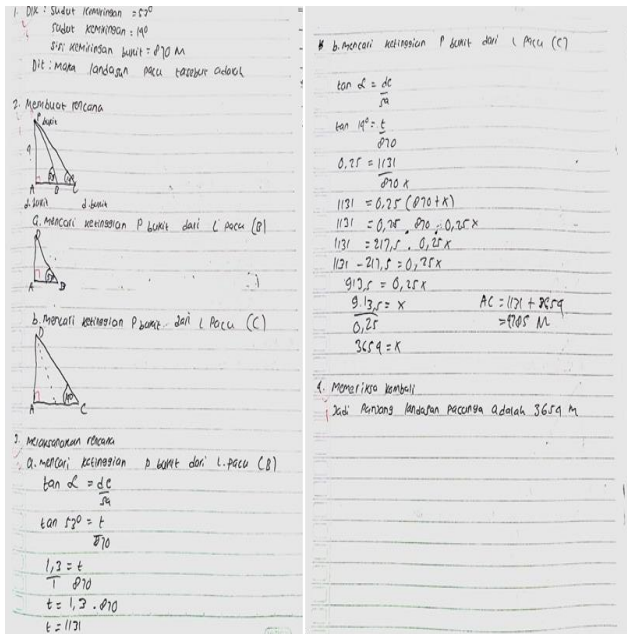 1. Dik : sudut kemiringan = 53°
sudut kemiringan = 14°
sisi kemiringan bukit = 870 M
Dit : Maka landasan pacu tersebut adalah
2. Membuat rencana
P bukit
A B C
d. bukit d. bukit
a. Mencari ketinggian P bukit dari L pacu (B)
A B
b. Mencari ketinggian P bukit dari L Pacu (C)
A C
3. Melaksanakan rencana
a. Mencari ketinggian P bukit dari L. pacu (B)
tan α = de
sa
tan 53° = t
870
1,3 = t
1 870
t = 1,3 . 870
t = 1131
b. Mencari ketinggian P bukit dari L Pacu (C)
tan α = de
sa
tan 14° = t
870
0,25 = 1131
870 x
1131 = 0,25 (870 + x)
1131 = 0,25 . 870 . 0,25 x
1131 = 217,5 . 0,25 x
1131 - 217,5 = 0,25 x
913,5 = 0,25 x
913,5 = x
0,25
3654 = x
AC = 1131 +
M
4. Memeriksa kembali
Jadi Panjang landasan pacunya adalah 3654 M